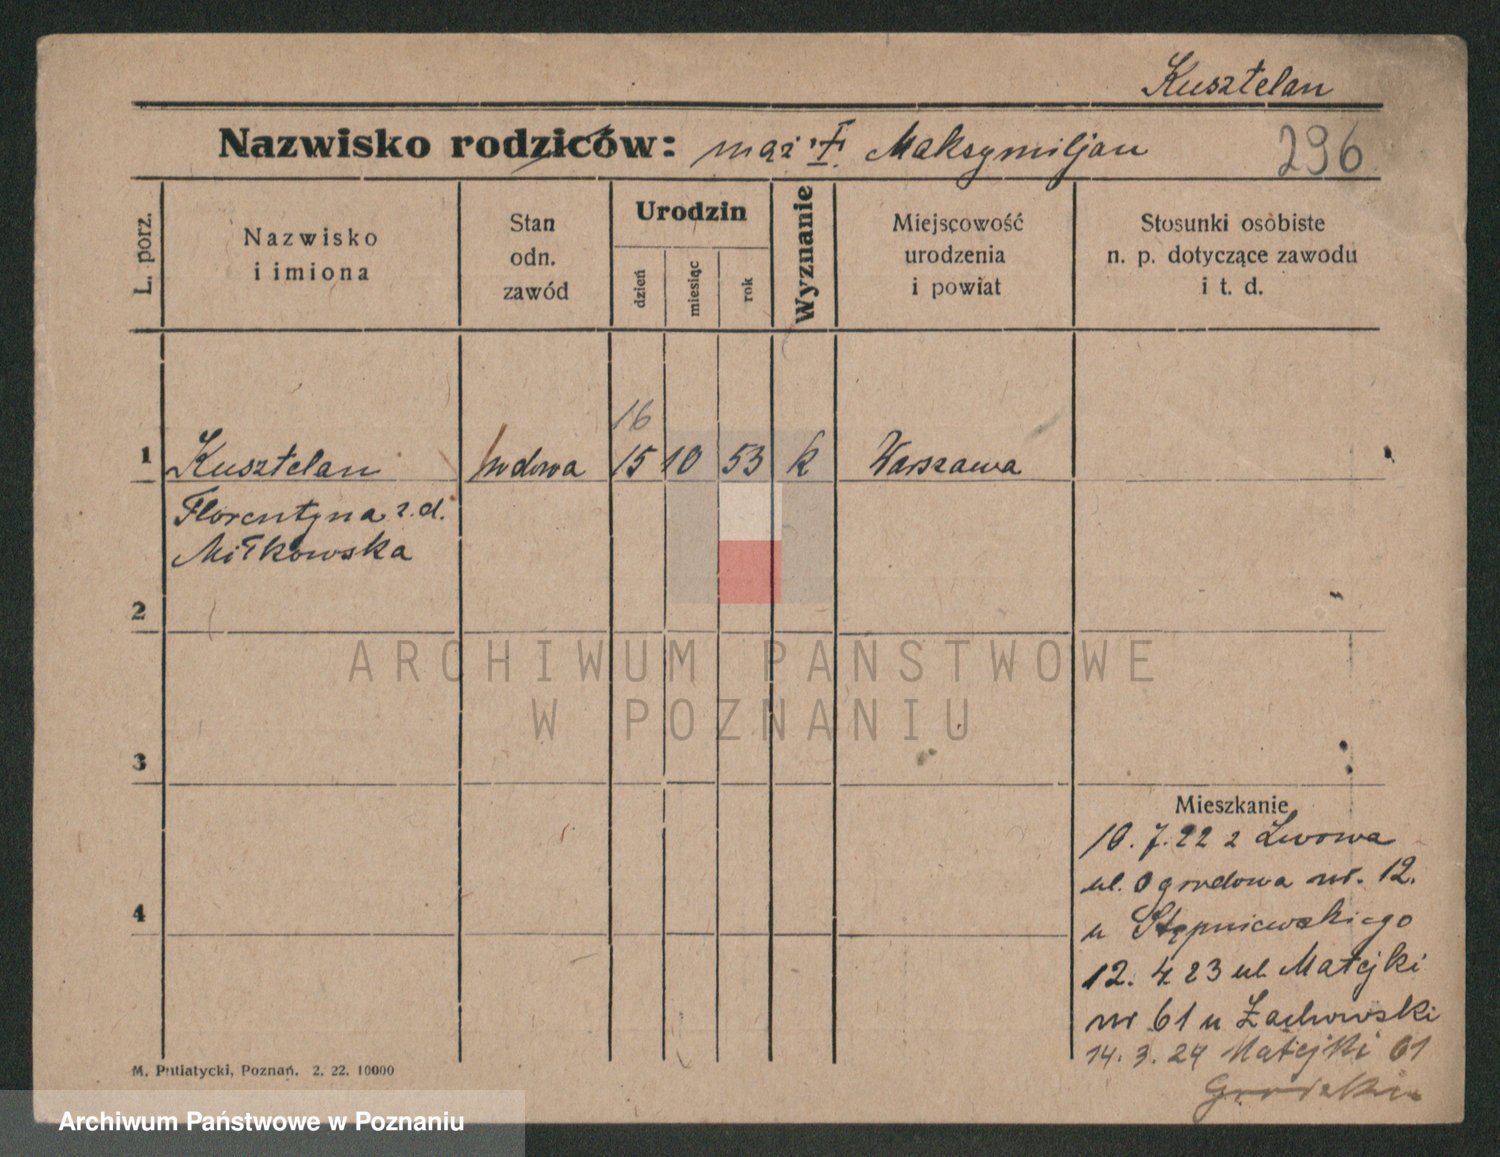 Kusztelan
Nazwisko rodziców: mąż † Maksymiljan 296
L. porz.
Nazwisko
i imiona
Stan
odn.
zawód
Urodzin
dzień
miesiąc
rok
Wyznanie
Miejscowość
urodzenia
i powiat
Stosunki osobiste
n. p. dotyczące zawodu
i t. d.
16
1 Kusztelan wdowa 15 10 53 k Warszawa
Florentyna z. d.
Miłkowska
2
ARCHIWUM PAŃSTWOWE
W POZNANIU
3
Mieszkanie
10. 7. 22 z Lwowa
ul. Ogrodowa nr. 12.
u Stępniewskiego
4
12. 4 23 ul. Matejki
nr 61 u Żachowski
14. 3. 24 Matejki 61
M. Putiatycki, Poznań. 2. 22. 10000
Archiwum Państwowe w Poznaniu